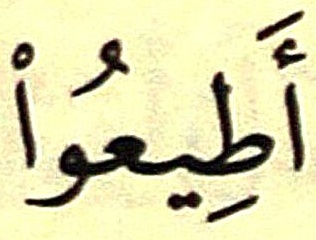 أَطِيعُواْ